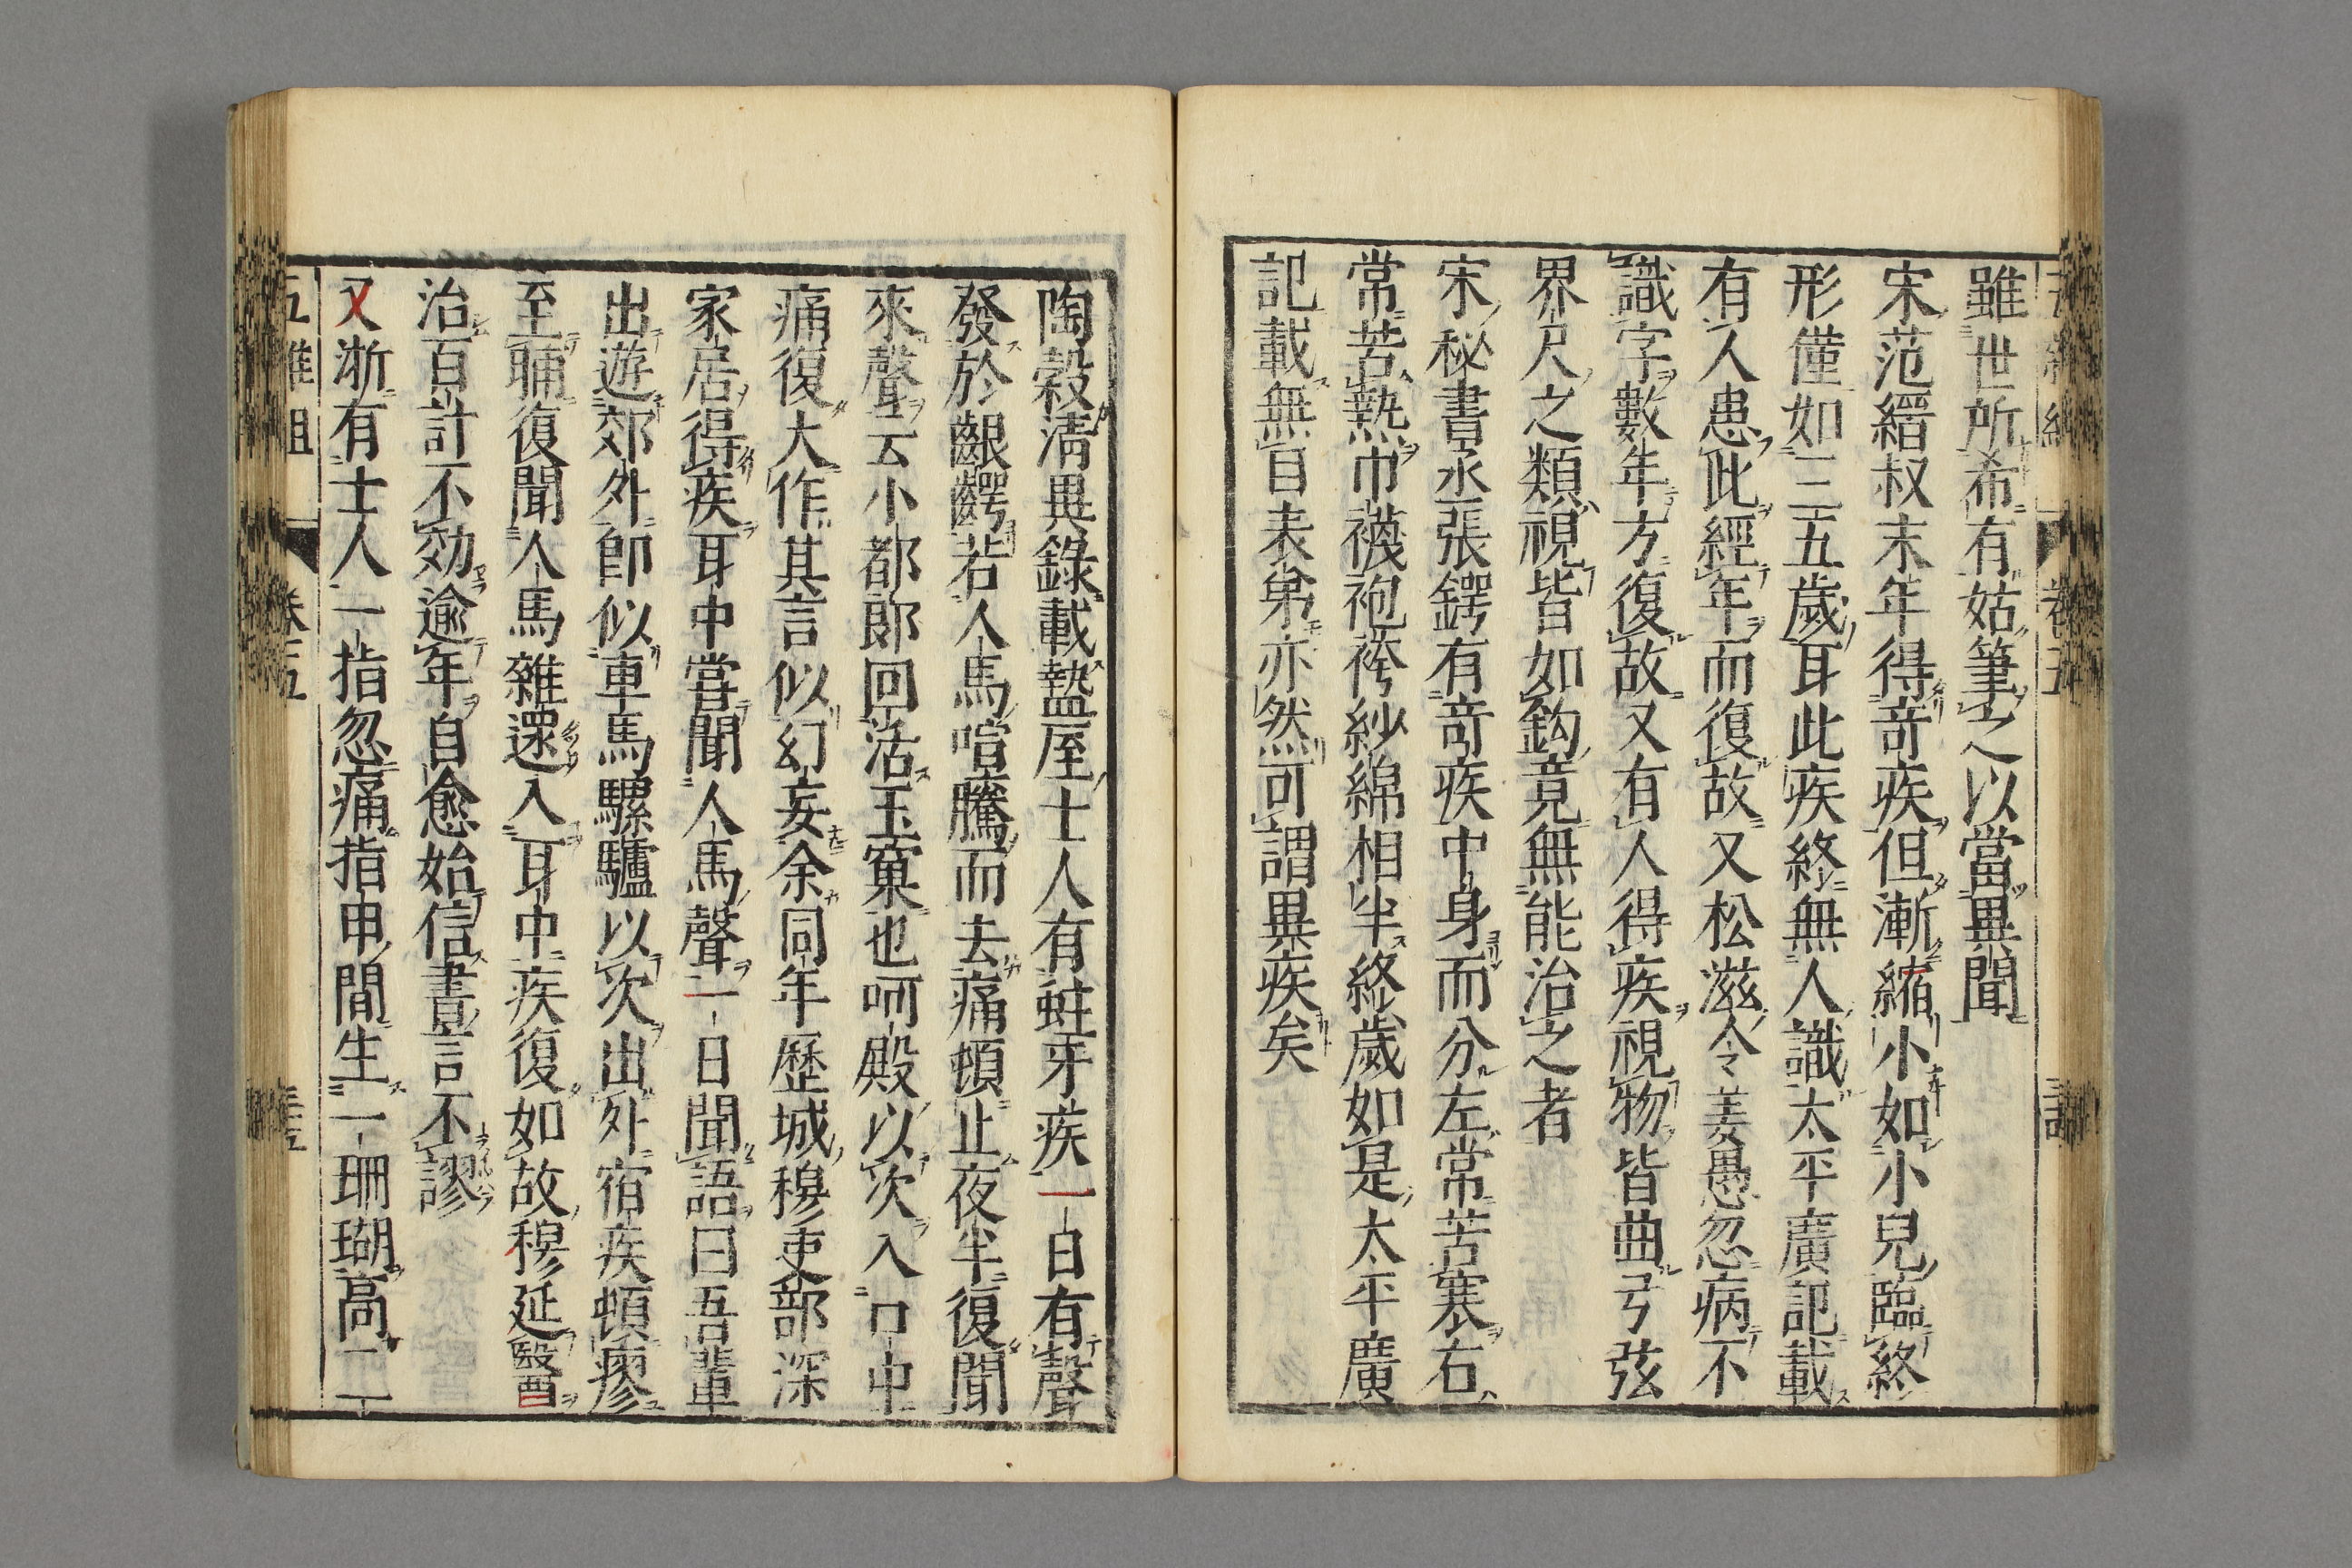 雖世所希有姑筆之以當異聞
宋范縉叔末年得竒疾但漸縮小如小兒臨終
形僅如三五歲耳此疾終無人識太平廣記載
有人患此經年而復故又松滋令姜愚忽病不
識字數年方復故又有人得疾視物皆曲弓弦
界尺之類視皆如鈎竟無能治之者
宋秘書丞張鍔有竒疾中身而分左常苦寒右
常苦熱巾襪袍袴紗綿相半終歲如是太平廣
記載無目表弟亦然可謂異疾矣
陶穀清異錄載盩厔士人有蛀牙疾一日有聲
發於齦齶若人馬喧騰而去痛頓止夜半復聞
來聲云小都郎回活玉窠也呵殿以次入口中
痛復大作其言似幻妄余同年歷城穆吏部深
家居得疾耳中嘗聞人馬聲一日聞語曰吾輩
出遊郊外即似車馬騾驢以次出外宿疾頓瘳
至晡復聞人馬雜還入耳中疾復如故穆延醫
治百計不効逾年自愈始信書言不謬
又浙有士人一指忽痛指甲間生一珊瑚高二
五雜俎
卷五